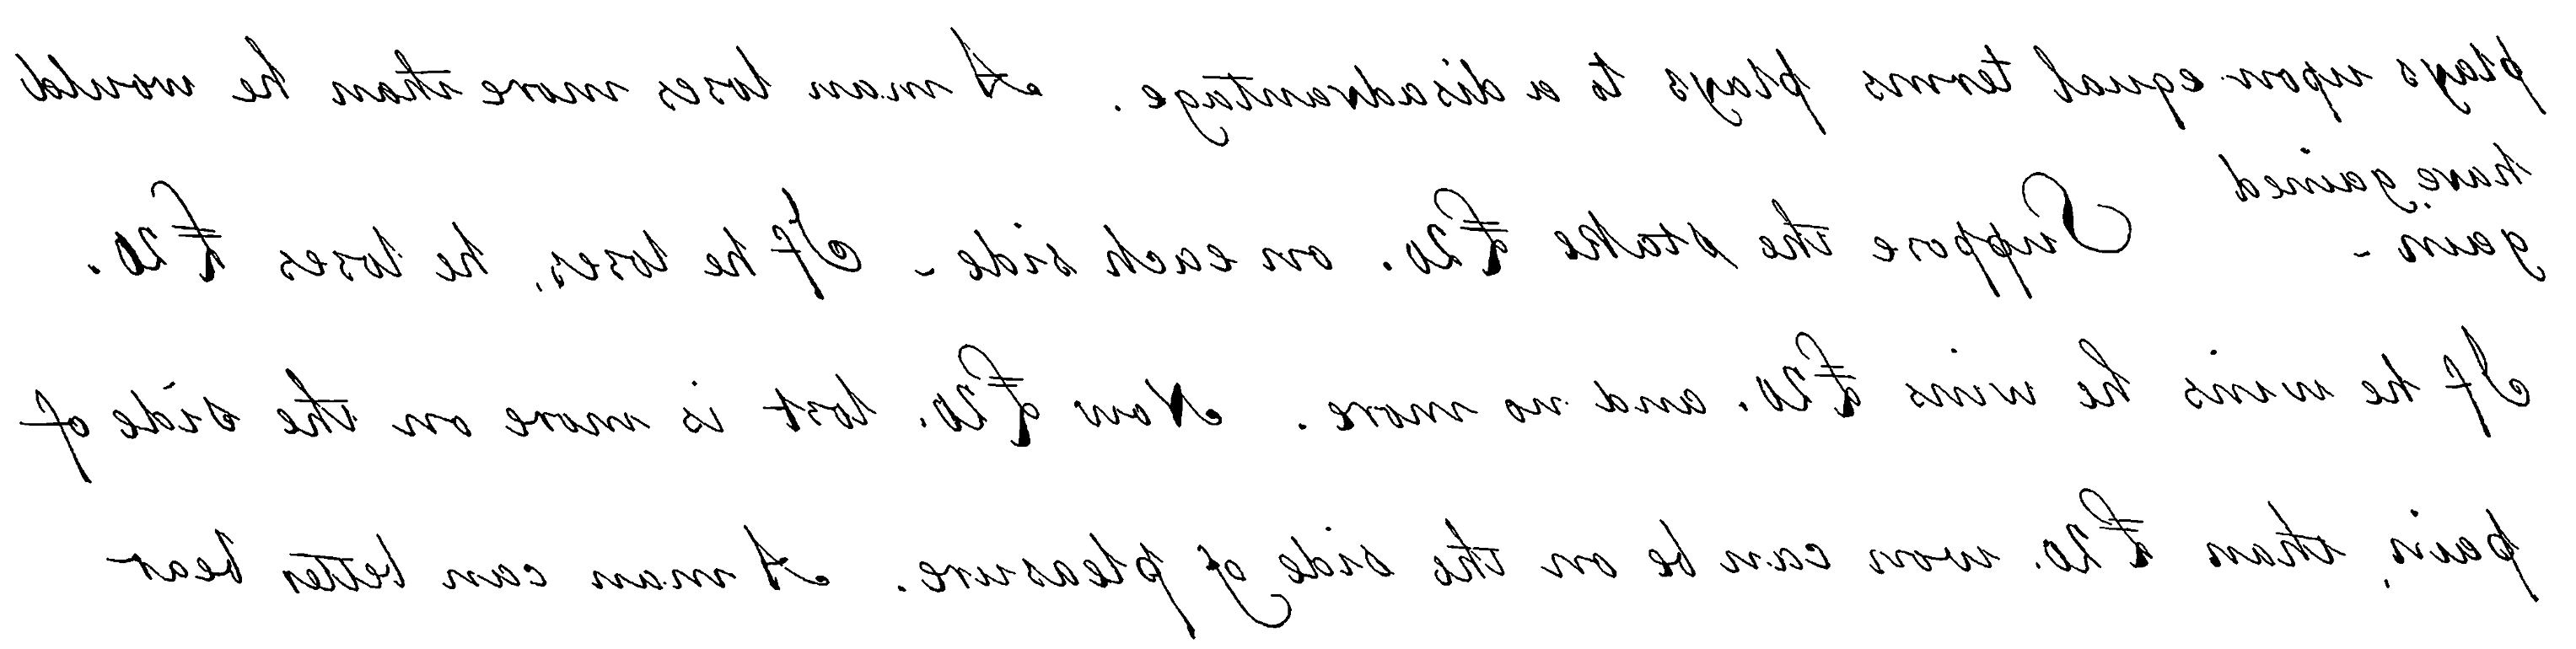 plays upon equal terms plays to a disadvantage. A man loses more than he would
have gained
gain - Suppose the stake £20. on each side - If he loses, he loses £20.
If he wins he wins £20. and no more. Now £20. lost is more on the side of
pain, than £20. won can be on the side of pleasure. A man can better bear